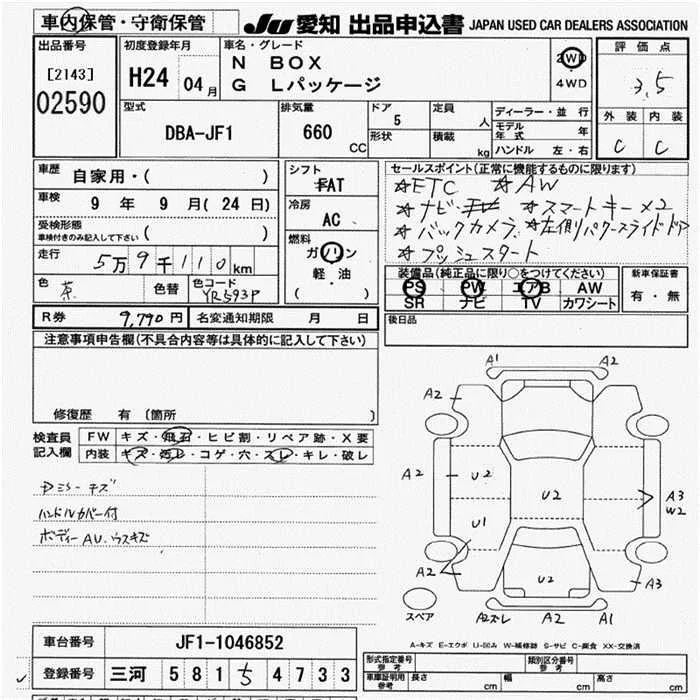 車内保管・守衛保管
JU 愛知 出品申込書 JAPAN USED CAR DEALERS ASSOCIATION
出品番号
[2143]
02590
初度登録年月
H24 04月
車名・グレード
N BOX
G Lパッケージ
2WD
4WD
評価点
3.5
外装 内装
C C
型式
DBA-JF1
排気量
660 CC
ドア
5
形状
定員 人
積載 kg
ディーラー・並行
モデル年式 年
ハンドル 左・右
車歴
自家用・( )
車検
9 年 9 月 (24 日)
受検形態
車検付きのみ記入して下さい ( )
走行
5万9千110km
色 茶 色替 色コード YR593P
シフト
FAT
冷房
AC
燃料
ガソリン
軽・油
( )
セールスポイント(正常に機能するものに限ります)
☆ETC ☆AW
☆ナビ・ ☆スマートキー×2
☆バックカメラ ☆左側パワースライドドア
☆プッシュスタート
装備品(純正品に限り○をつけてください)
PS PW エアB AW
SR ナビ TV カワシート
新車保証書
有・無
R券 9,790円 名変通知期限 月 日
後日品
注意事項申告欄(不具合内容等は具体的に記入して下さい)
修復歴 有 〔箇所 〕
検査員記入欄
FW キズ・飛石・ヒビ割・リペア跡・X要
内装 キズ・汚レ・コゲ・穴・スレ・キレ・破レ
キズ
ハンドルカバー付
ボディーAU.ウスキズ
A1 A2
A2
A2 U2 U2 A3
W2
U1
A2 U2 A3
A2ズレ A2 A1
スペア
A-キズ E-エクボ U-凹み W-補修跡 S-サビ C-腐食 XX-交換済
車台番号 JF1-1046852
登録番号 三河 5 8 1 5 4 7 3 3
形式指定番号 参考 類別区分番号 参考
車庫証明用 参考 長さ cm 幅 cm 高さ cm